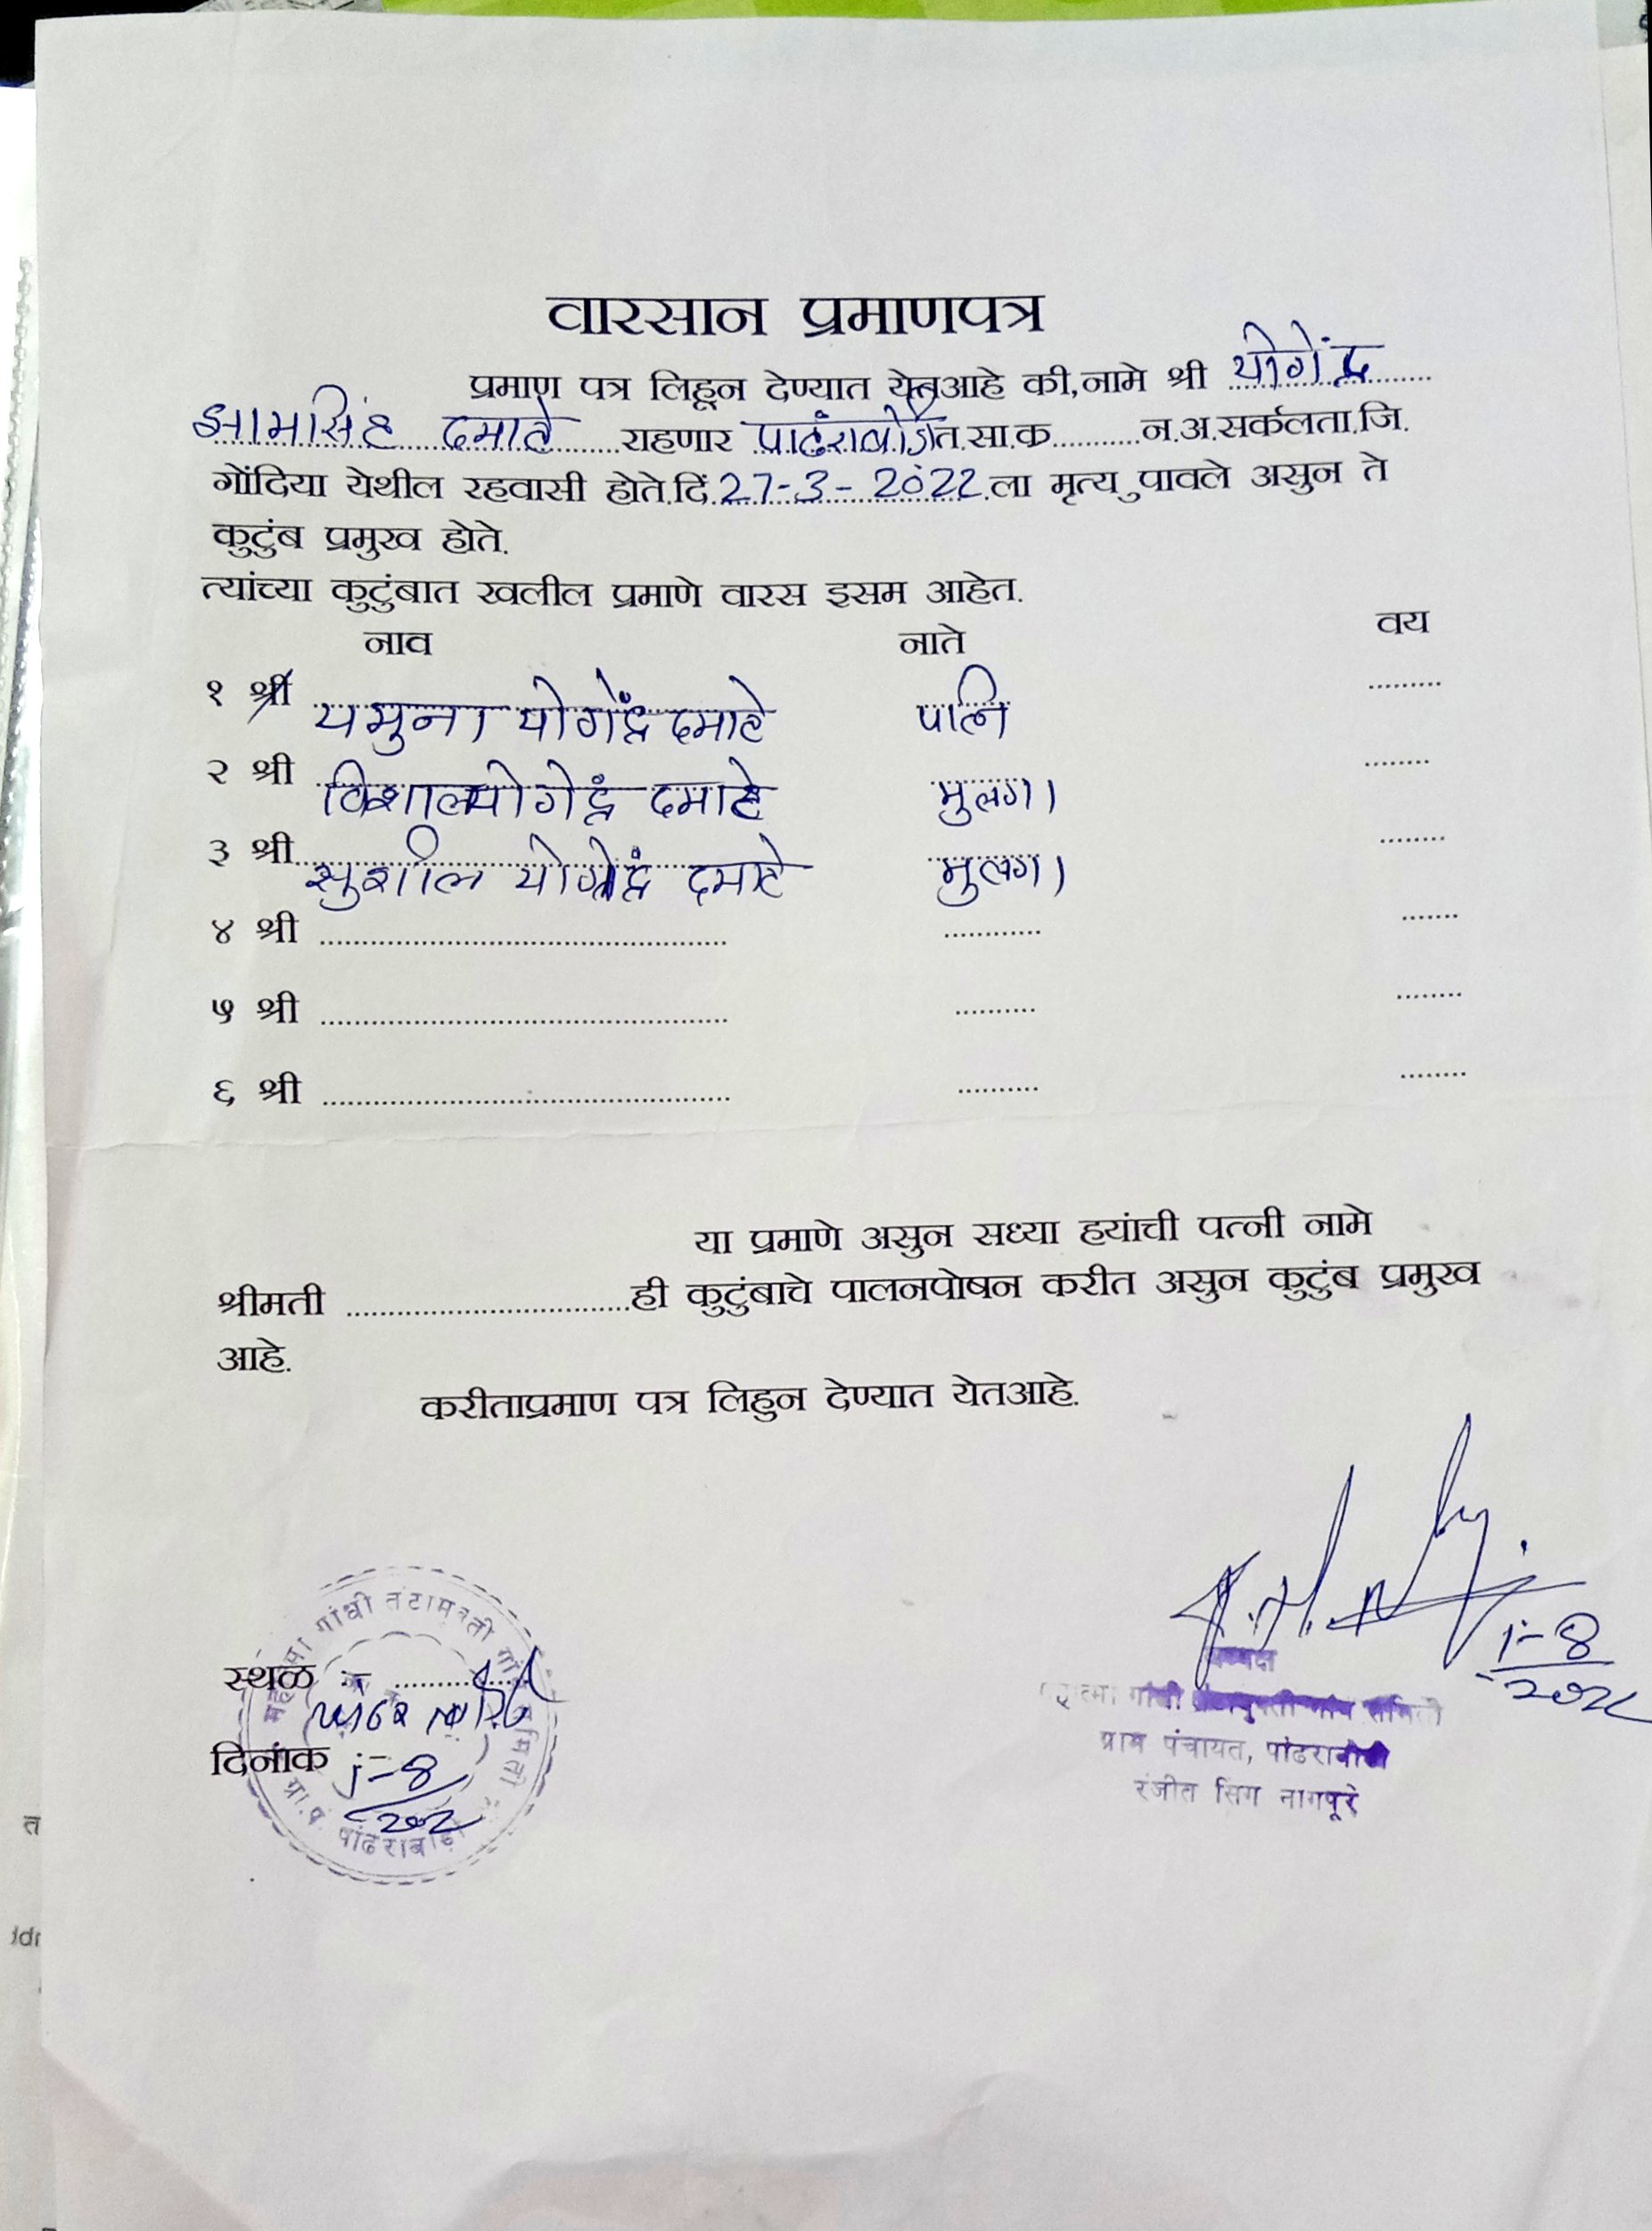 वारसान प्रमाणपत्र
प्रमाण पत्र लिहून देण्यात येत आहे की,नामे श्री योगेंद्र
झामसिंह दमाहे राहणार पाढंराबोडी त.सा.क...........न.अ.सर्कलता.जि.
गोंदिया येथील रहवासी होते.दिं.27-3-2022.ला मृत्यु पावले असुन ते
कुटुंब प्रमुख होते.
त्यांच्या कुटुंबात खलील प्रमाणे वारस इसम आहेत.
नाव नाते वय
१ श्री यमुना योगेंद्र दमाहे पत्नि .........
२ श्री विशाल योगेंद्र दमाहे मुलगा ........
३ श्री सुशील योगेंद्र दमाहे मुलगा ........
४ श्री ................................................ ............ .......
५ श्री ................................................ .......... ........
६ श्री ................................................ .......... ........
या प्रमाणे असुन सध्या हयांची पत्नी नामे
श्रीमती .................................ही कुटुंबाचे पालनपोषन करीत असुन कुटुंब प्रमुख
आहे.
करीताप्रमाण पत्र लिहुन देण्यात येतआहे.
1-8
अध्यक्ष
गांधी समिती
ग्राम पंचायत, पांढराबोडी
रंजीत सिग नागपूरे
महात्मा गांधी तंटामुक्ती गांव समिती
ग्रा.पं. पांढराबोडी
स्थळ :-
दिनांक 1-8